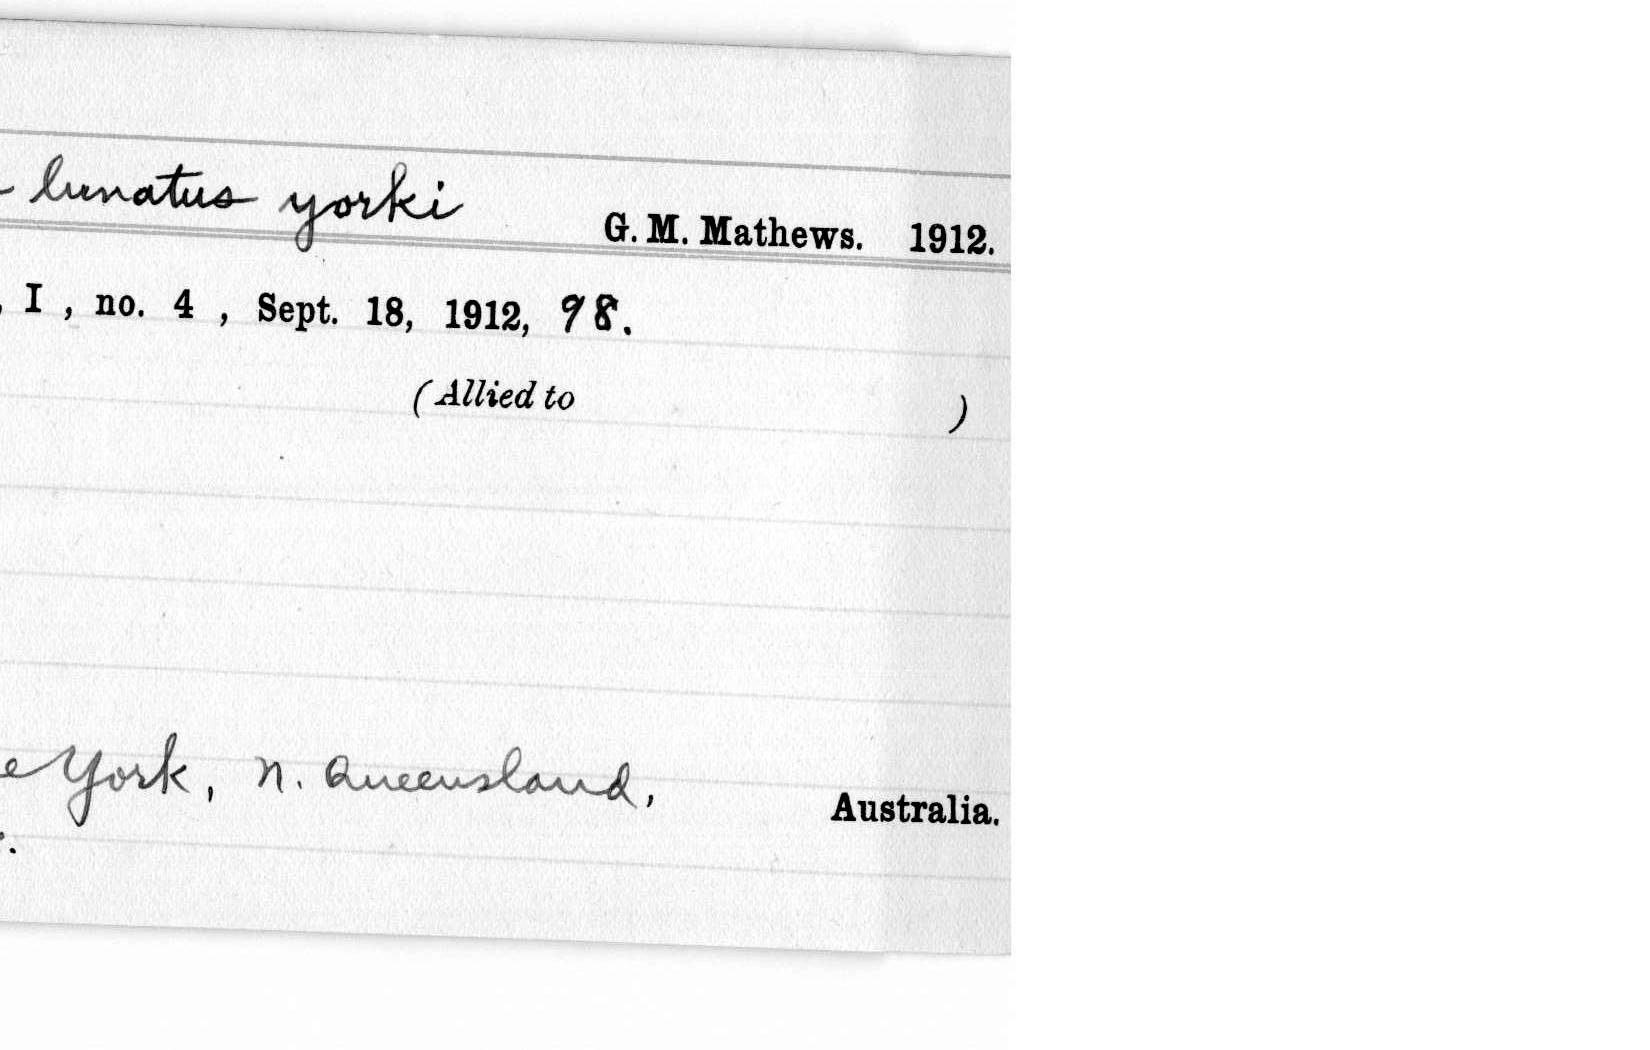 lunatus yorki G. M. Mathews. 1912.
, I, no. 4, Sept. 18, 1912, 98.
(Allied to )
York, N. Queensland, Australia.